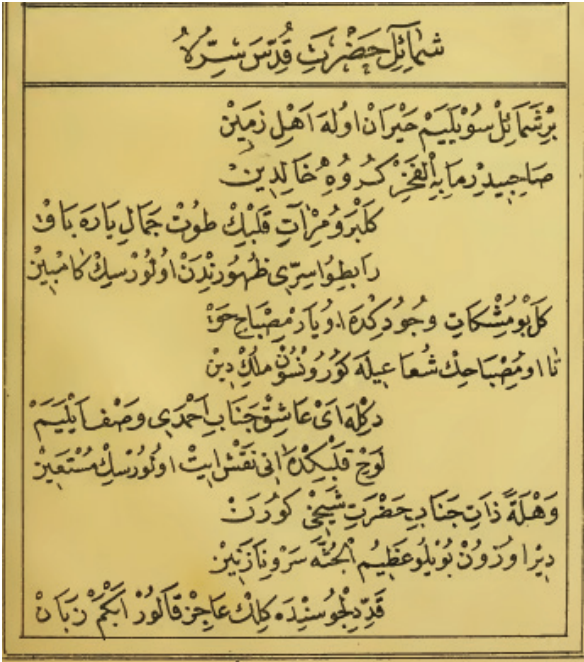 شمائل حضرت قدس سره
بر شمائل سويليم حيران اوله اهل زمين
صاحبيدر مابه الفخر كروه خالدين
كل برو مرآت قلبك طوت جمال ياره باق
رابطه سرى ظهورندن اولورسك كامبين
كل بو مشكات وجودكده اويار مصباح حق
تا او مصباحك شعاعيله كورونسون ملك دين
دكله اى عاشق جناب احمدى وصف ايليم
لوح قلبكده انى نقش ايت اولورسك مستعين
وهلة ذات جناب حضرت شيخى كورن
دير اوزون بويلو عظيم الجثه سرو نازنين
قد دلجوسنده كلك عاجز قالور ابكم زبان